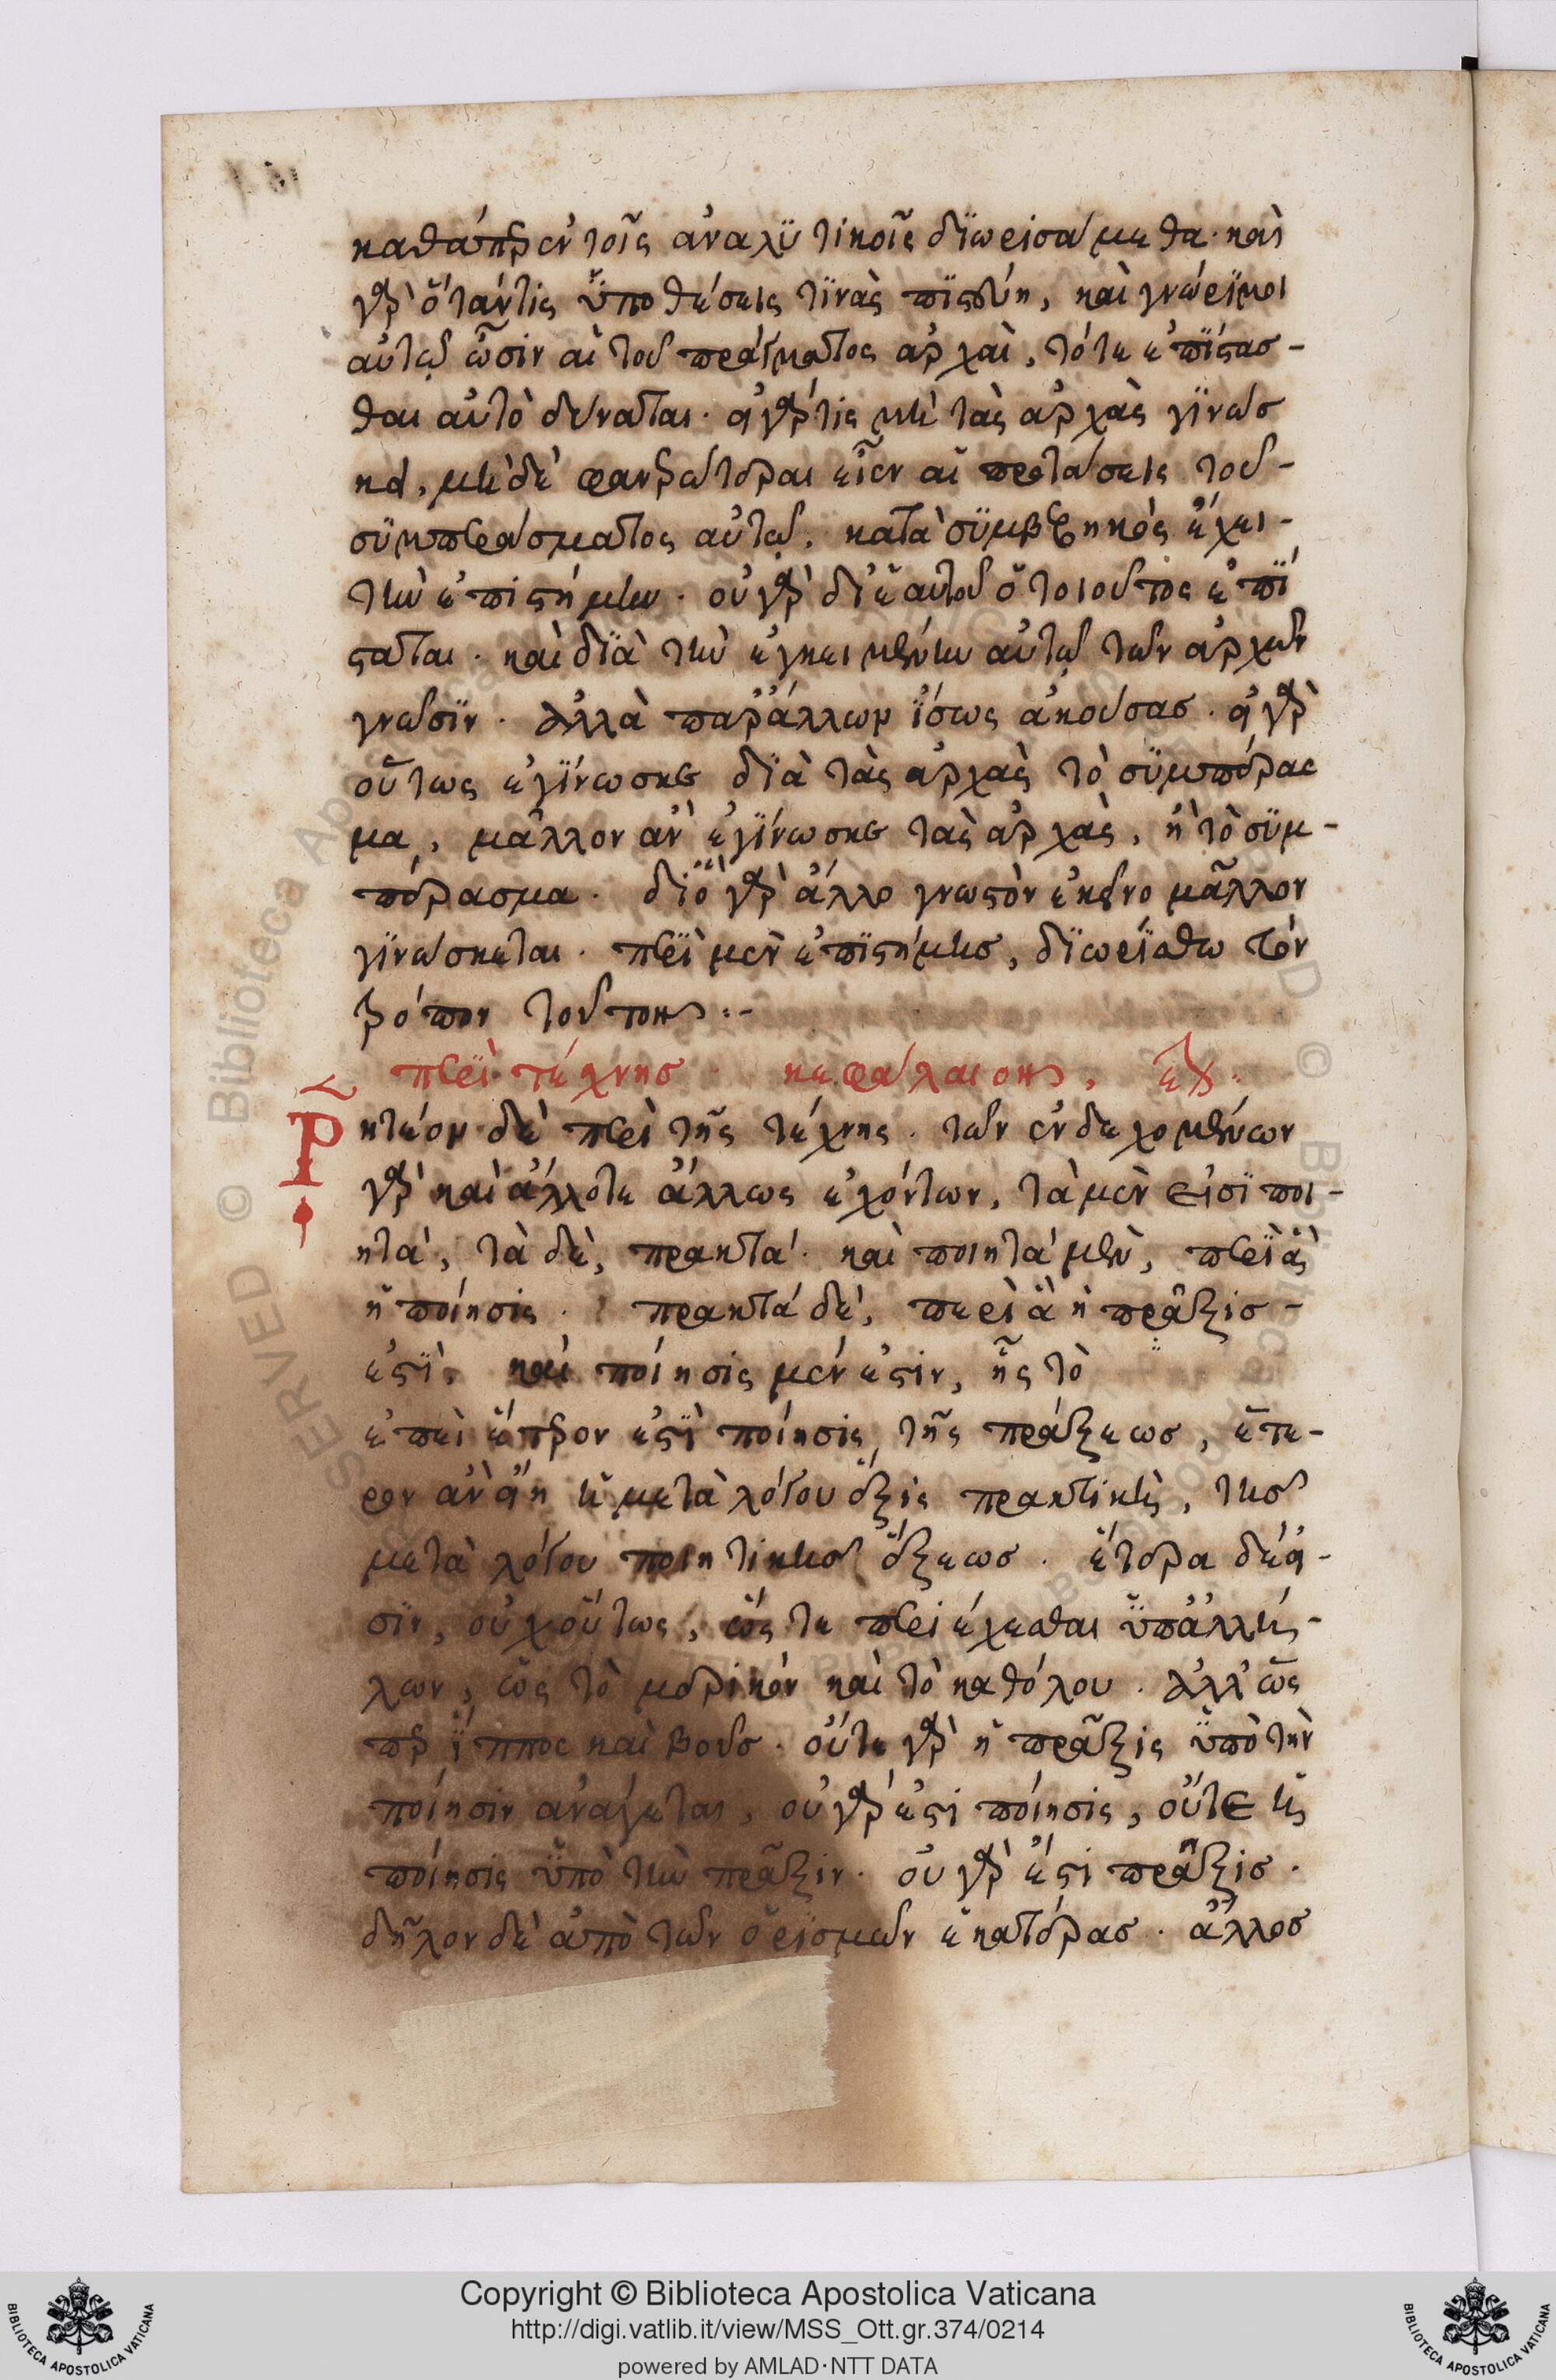 καθάπερ ἐν τοῖς ἀναλϋτικοῖς δϊωρισάμεθα· καὶ
γὰρ ὅταν τις ὑποθέσεις τϊνὰς πϊστεύη, καὶ γνώριμοι
αὐτῷ ὦσιν αἱ τοῦ πράγματος ἀρχαὶ, τότε ἐπίστασ-
θαι αὐτὸ δύναται· εἰ γάρ τις μὴ τὰς ἀρχὰς γϊνώσ
κει, μὴ δὲ φανερώτεραι εἶεν αἱ προτάσεις τοῦ-
σϋμπεράσματος αὐτῷ, κατὰ σϋμβεβηκὸς ἔχει-
τὴν ἐπιστήμην· οὐ γὰρ δι' ἑαυτοῦ ὁ τοιοῦτος ἐπί
σταται· καὶ δϊὰ τὴν ἐγκειμένην αὐτῷ τῶν ἀρχῶν
γνῶσϊν· ἀλλὰ παρ' ἄλλων ἴσως ἀκούσασ· εἰ γὰρ
οὕτως ἐγίνωσκε δϊὰ τὰς ἀρχὰς τὸ σϋμπέρασ
μα, μᾶλλον ἂν ἐγίνωσκε τὰς ἀρχὰς, ἢ τὸ σϋμ-
πέρασμα· δι' ὃ γὰρ ἄλλο γνωστὸν ἐκεῖνο μᾶλλον
γϊνώσκεται· περὶ μὲν ἐπϊστήμησ, δϊωρίσθω τὸν
τρόπον τοῦτον :-
περὶ τέχνησ· κεφάλαιον,
Ῥητέον δὲ περὶ τῆς τέχνης· τῶν ἐνδεχομένων
γὰρ καὶ ἄλλοτε ἄλλως ἐχόντων, τὰ μὲν εἰσὶ ποι-
ητά, τὰ δὲ, πρακτά· καὶ ποιητὰ μὲν, περὶ ἃ
ἡ ποίησις· πρακτὰ δὲ, περὶ ἃ ἡ πρᾶξισ-
ἐστϊ, καὶ ποίησις μέν ἐστιν, ἧς τὸ
ἐπεὶ ἕτερον ἐστϊ ποίησις τῆς πράξεωσ, ἕτε-
ρον ἂν εἴη ἡ μετὰ λόγου ἕξις πρακτικὴ, τῆσ
μετὰ λόγου ποιητικῆσ ἕξεωσ· ἕτερα δέ εἰ-
σϊν, οὐχ οὕτως, ὥς τε περιέχεσθαι ὑπ' ἀλλή-
λων, ὡς τὸ μερικὸν καὶ τὸ καθόλου· ἀλλ' ὥς
περ ἵππος καὶ βοῦσ· οὔτε γὰρ ἡ πρᾶξις ὑπὸ τὴν
ποίησιν ἀνάγεται, οὐ γάρ ἐστι ποίησις, οὔτε ἡ
ποίησις ὑπὸ τὴν πρᾶξιν· οὐ γὰρ ἔστι πρᾶξισ·
δῆλον δὲ ἀπὸ τῶν ὁρϊσμῶν ἑκατέρασ· ἄλλοσ
Copyright © Biblioteca Apostolica Vaticana
http://digi.vatlib.it/view/MSS_Ott.gr.374/0214
powered by AMLAD·NTT DATA